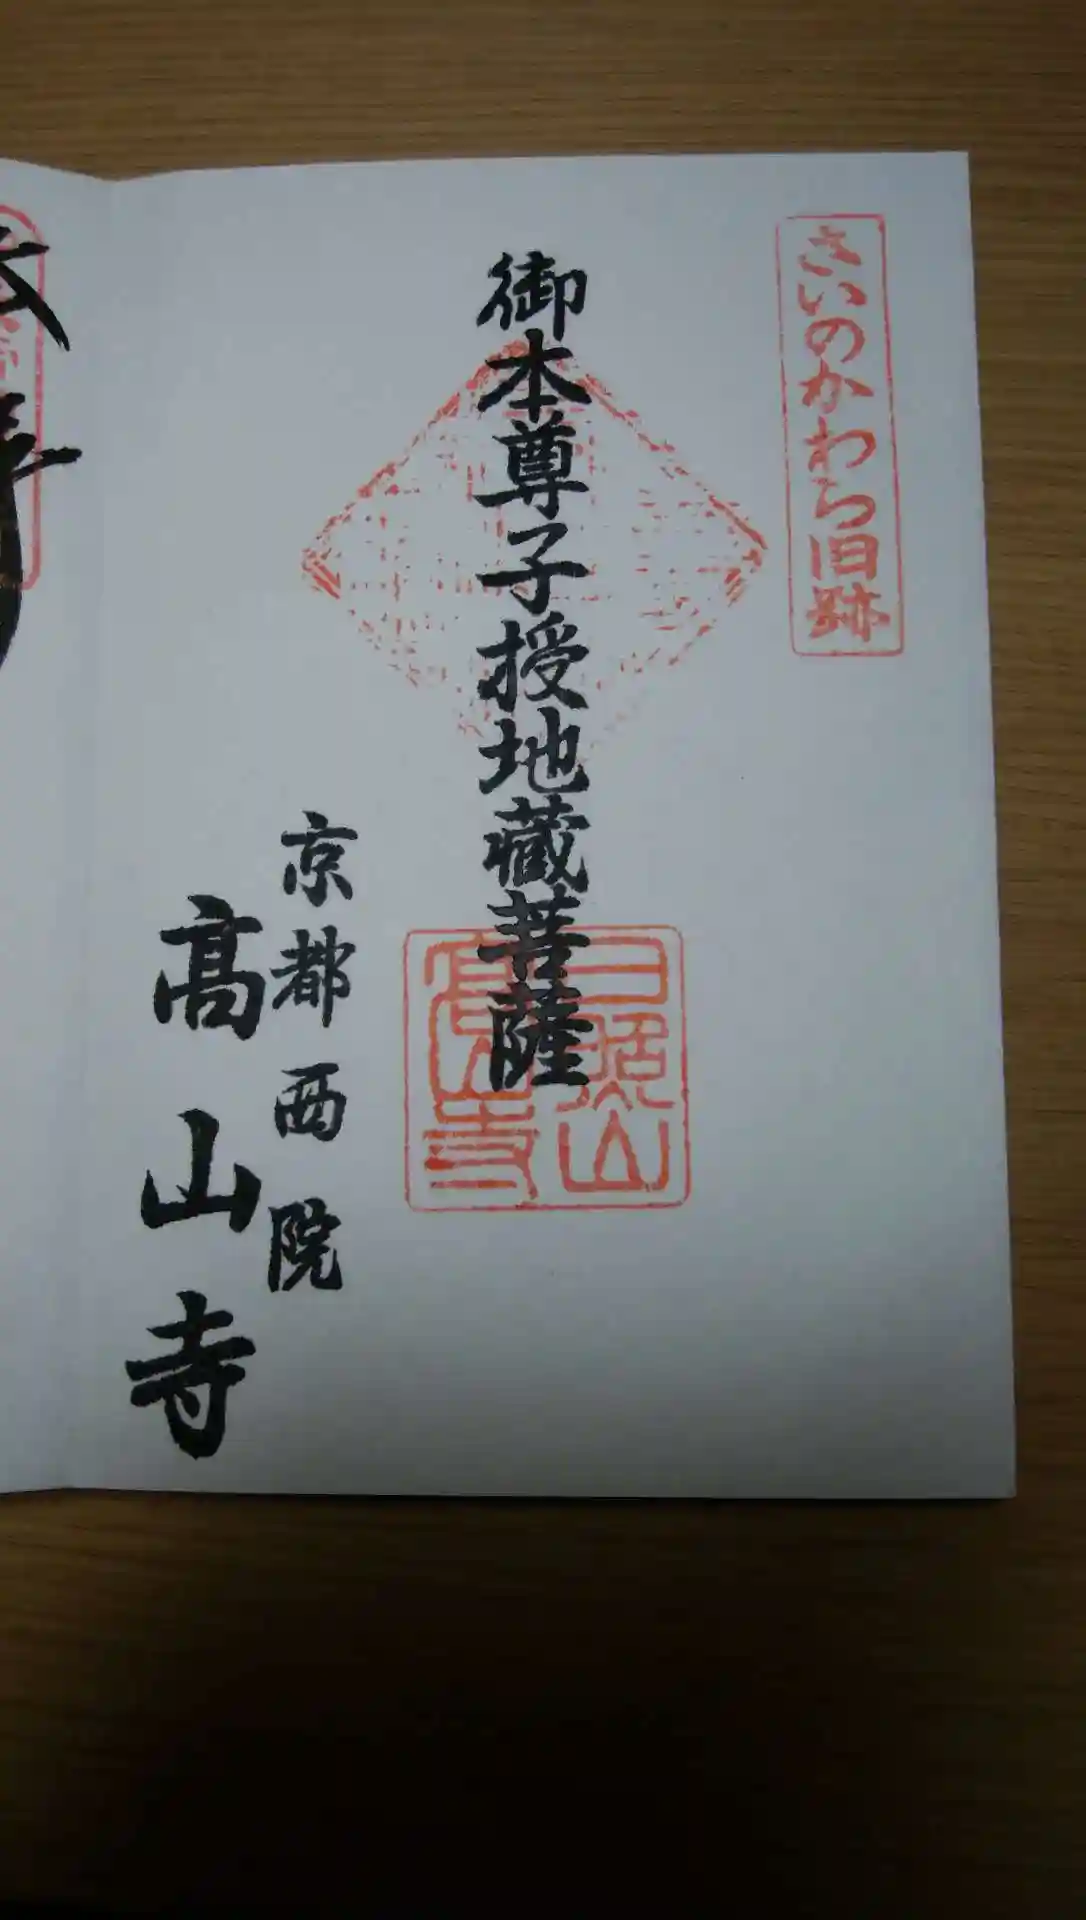 さいのかわら旧跡
御本尊子授地藏菩薩
京都西院
髙山寺